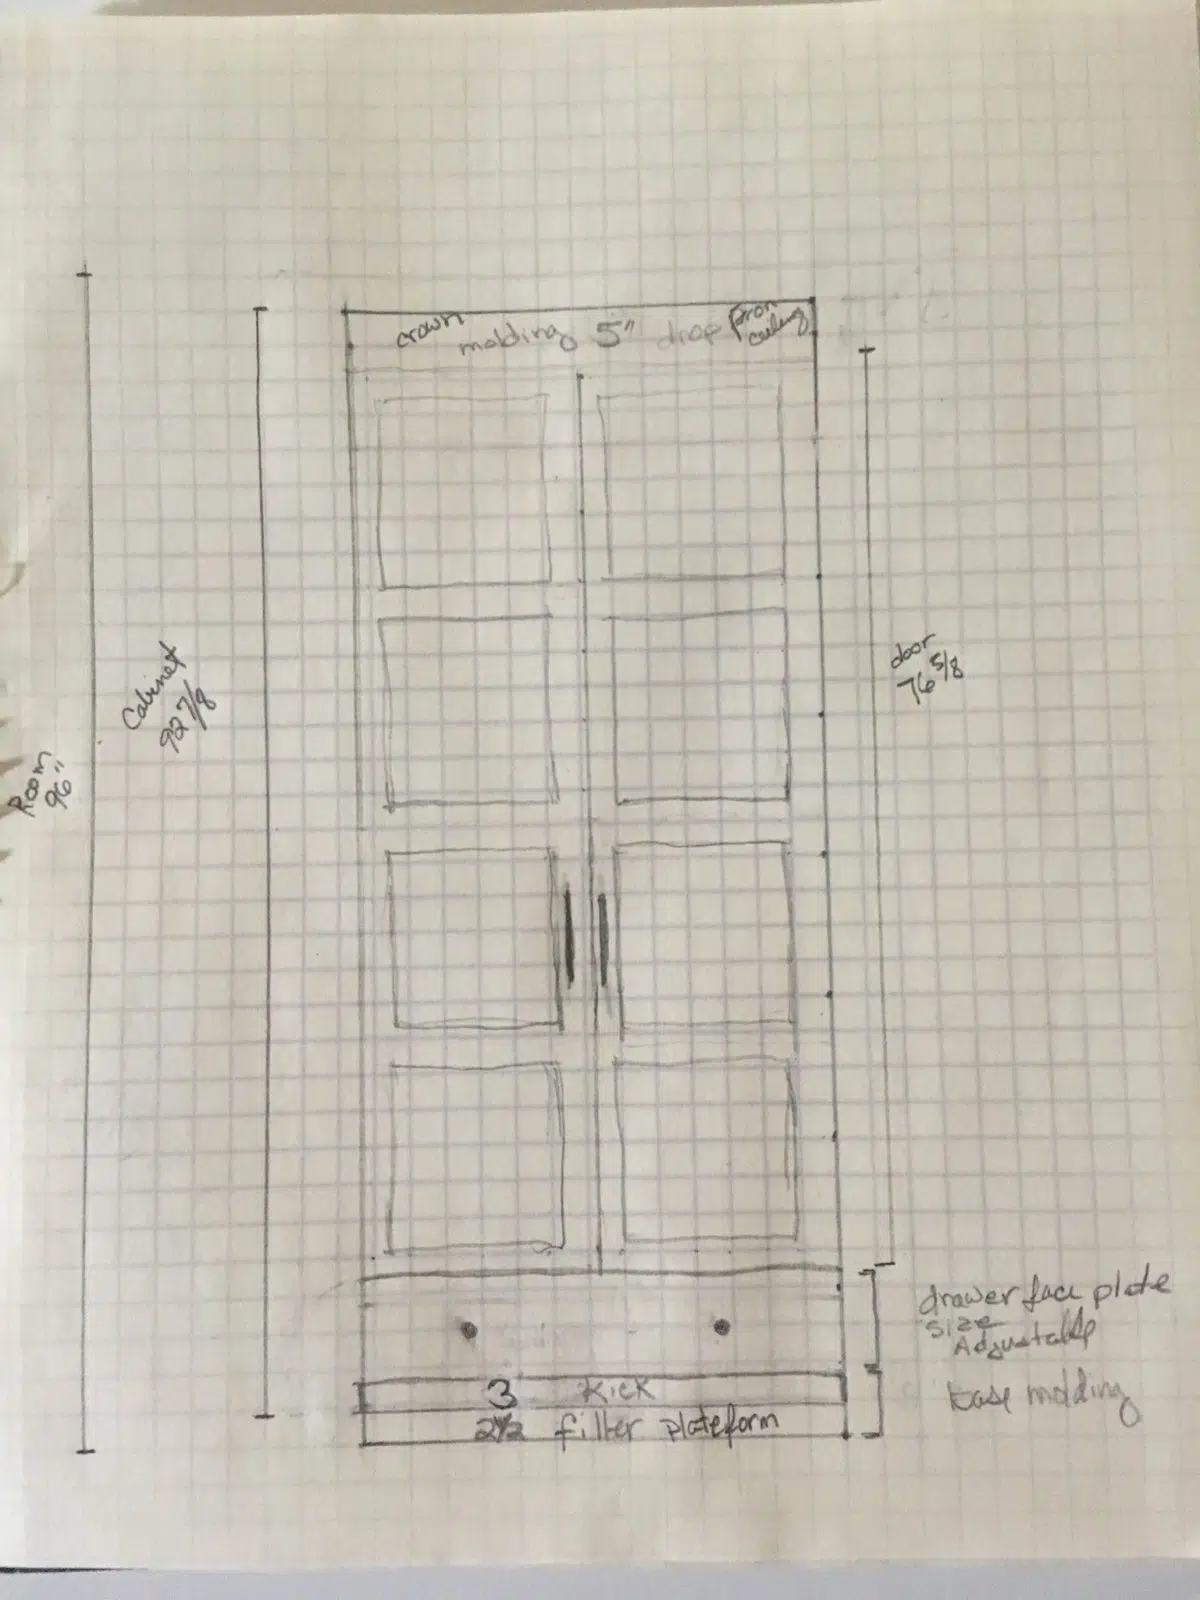 crown molding 5" drop from ceiling
door
76 5/8
Cabinet
92 7/8
Room
96"
drawer face plate
size
Adjustable
base molding
3 kick
2 1/2 filler plateform